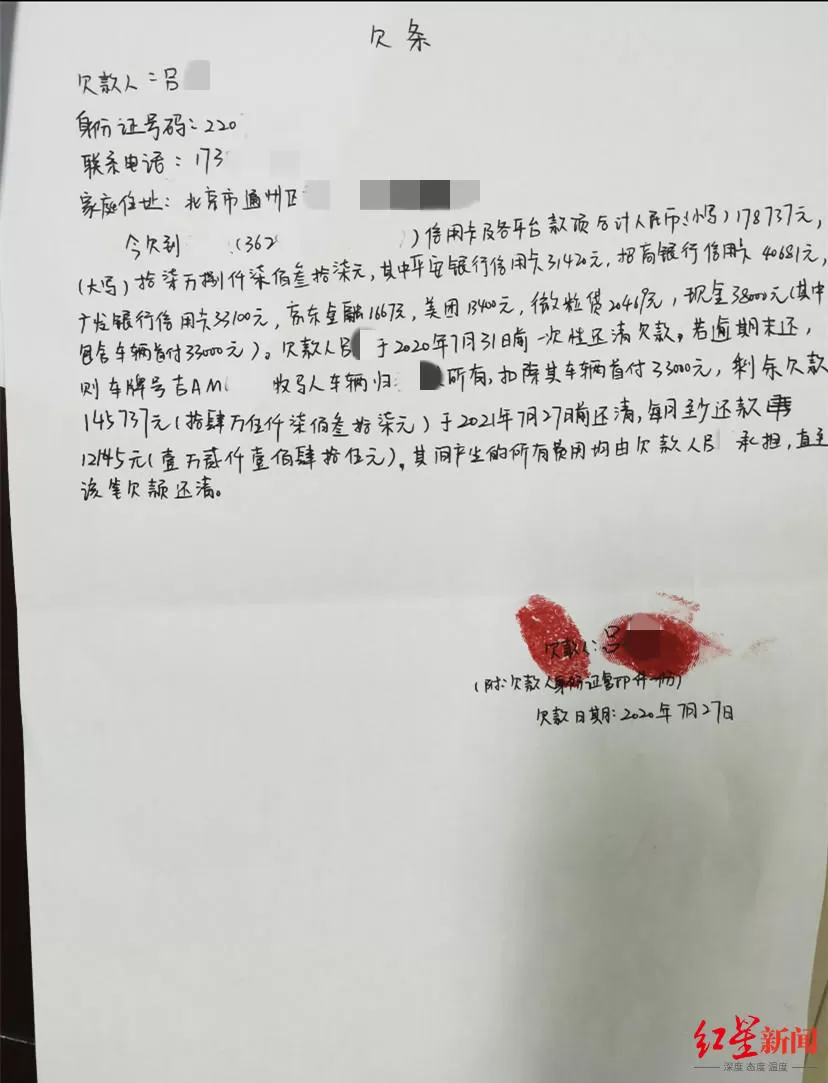 欠条
欠款人:吕
身份证号码:220
联系电话:173
家庭住址:北京市通州区
今欠到 (362 )信用卡及各平台款项合计人民币(小写)178737元,
(大写)拾柒万捌仟柒佰叁拾柒元,其中平安银行信用卡31420元,招商银行信用卡40681元,
广发银行信用卡33100元,京东金融1667元,美团13400元,微粒贷20469元,现金38000元(其中
包含车辆首付33000元)。欠款人吕 于2020年7月31日前一次性还清欠款。若逾期未还,
则车牌号吉AM 牧马人车辆归 所有,扣除其车辆首付33000元,剩余欠款
145737元(拾肆万伍仟柒佰叁拾柒元)于2021年7月27日前还清,每月至少还款
12145元(壹万贰仟壹佰肆拾伍元)。其间产生的所有费用均由欠款人吕 承担,直至
该笔欠款还清。
欠款人:吕
(附:欠款人身份证复印件一份)
欠款日期:2020年7月27日
红星新闻
深度 态度 温度